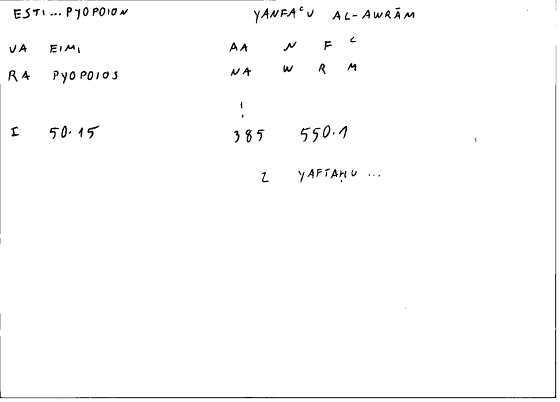 ESTI... PYOPOION YANFAᶜU AL-AWRĀM
VA EIMI AA N F ᶜ
RA PYOPOIOS NA W R M
!
I 50.15 385 550.1
2 YAFTAḤU ...